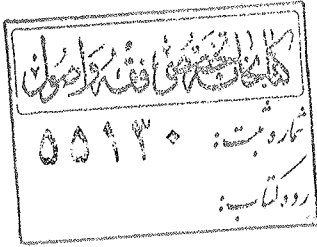 کتابخانه تخصصی فقه و اصول
شماره ثبت: ۵۵۱۳۰
رده کتاب: